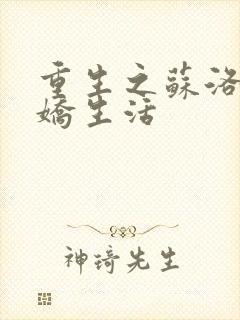 重生之蘇洛
嬌生活
神琦先生